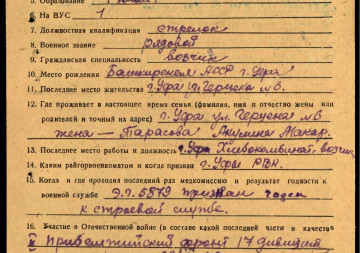 5. Образование
6. На ВУС 1
7. Должностная квалификация стрелок
8. Военное звание рядовой
9. Гражданская специальность возчик
10. Место рождения Башкирская АССР г. Уфа
11. Последнее место жительства г. Уфа ул. Герцена №6.
12. Где проживает в настоящее время семья (фамилия, имя и отчество жены или
родителей и точный их адрес) г. Уфа ул. Герцена №6
жена — Тарасова Акулина Макар.
13. Последнее место работы и должность г. Уфа Хлебокомбинат. возчик
14. Каким райгорвоенкоматом и когда призван г. Уфы РВК.
15. Когда и где проходил раз медкомиссию и результат годности к
военной службе Э.Г. 5879 признан годен
к строевой службе.
16. Участие в Отечественной войне (в составе какой последней части в качестве
II Прибалтийский фронт 17 дивизия